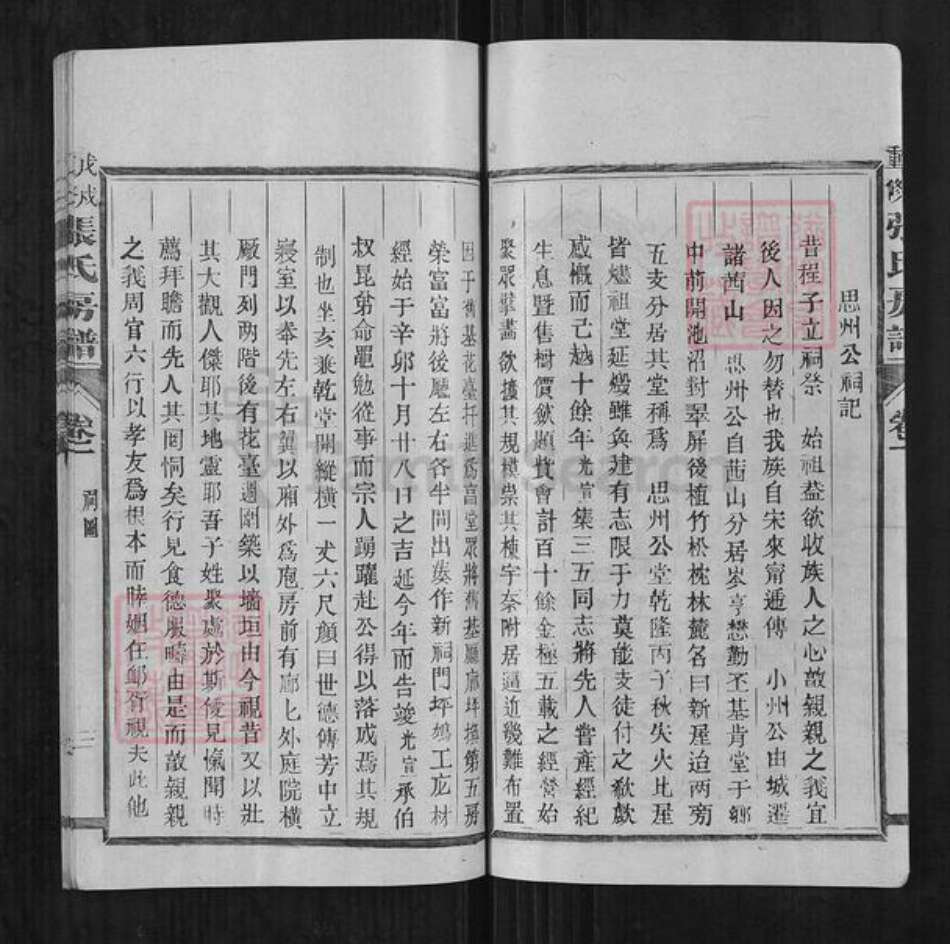 重修張氏房譜
卷一
思州公祠記
昔程子立祠祭　始祖蓋欲收族人之心敬親親之義宜
後人因之勿替也我族自宋來甯遞傳　小州公由城遷
諸茜山　思州公自茜山分居岑亨懋勤丕基肯堂于鄉
中前開池沼對翠屏後植竹松枕林麓名曰新屋迨兩旁
五支分居其堂稱爲　思州公堂乾隆丙子秋失火比屋
皆燼祖堂延燬雖奐建有志限于力莫能支徒付之欷歔
感慨而已越十餘年光宣集三五同志將先人嘗產經紀
生息暨售樹價歛題貲會計百十餘金極五載之經營始
聚眾擘畫欲擴其規模崇其棟宇奈附居逼近幾難布置
因于舊基花臺扦進爲高堂眾將舊基廳廊坪換第五房
榮富富將後廳左右各半間出葵作新祠門坪鳩工庀材
經始于辛卯十月廿八日之吉延今年而告竣光宣承伯
叔昆弟命黽勉從事而宗人踴躍赴公得以落成焉其規
制也坐亥兼乾堂開縱橫一丈六尺顏曰世德傳芳中立
寢室以奉先左右翼以廂外爲庖房前有廊廊外庭院橫
廠門列兩階後有花臺週圍築以墻垣由今視昔又以壯
其大觀人傑耶其地靈耶吾子姓聚處於斯僾見愾聞時
薦拜瞻而先人其罔恫矣行見食德服疇由是而敬親親
之義周官六行以孝友爲根本而睦婣任卹胥視夫此他
戊戌
張氏房譜
卷一
祠圖
二